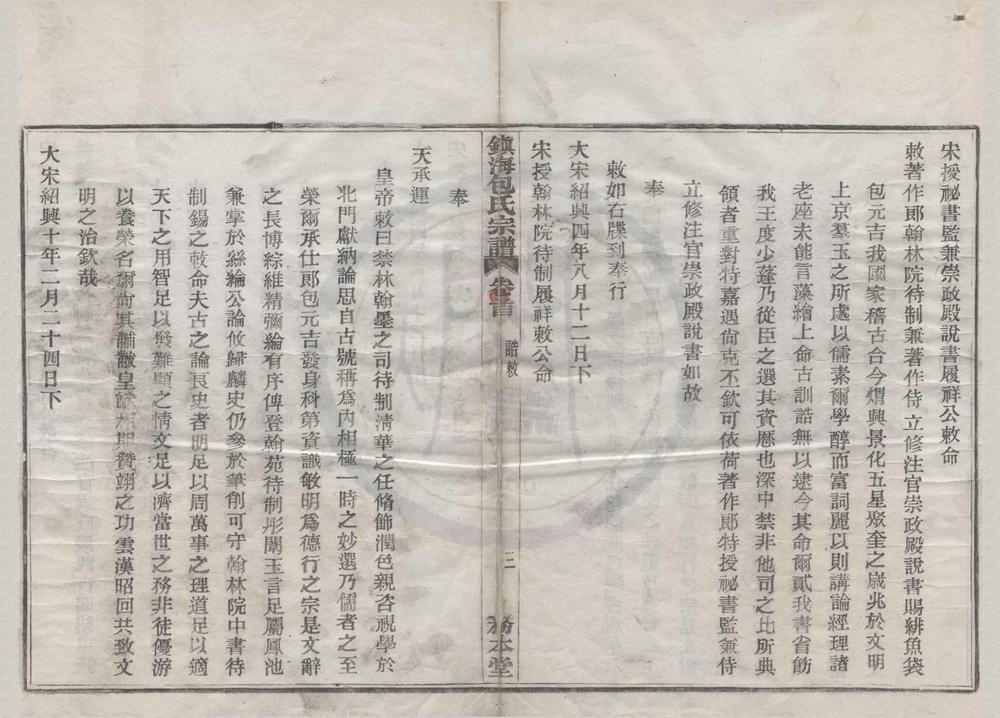 宋授祕書監兼崇政殿說書履祥公敕命
敕著作郎翰林院待制兼著作侍立修注官崇政殿說書賜緋魚袋
包元吉我國家稽古合今熠興景化五星聚奎之歲兆於文明
上京羣玉之所處以儒素爾學醇而富詞麗以則講論經理諸
老座未能言藻繪上命古訓誥無以逮今其命爾貳我書省筋
我王度少蓬乃從臣之選其資歷也深中禁非他司之比所典
領者重對特嘉遇尙克不欽可依荷著作郎特授祕書監兼侍
立修注官崇政殿說書如故
奉
敕如右牒到奉行
大宋紹興四年八月十二日下
宋授翰林院待制履祥敕公命
鎮海包氏宗譜
卷首
誥敕
三
務本堂
奉
天承運
皇帝敕曰禁林翰墨之司待制淸華之任脩飾潤色親咨視學於
北門獻納論思自古號稱爲內相極一時之妙選乃儒者之至
榮爾承仕郎包元吉發身科第資識敏明爲德行之宗是文辭
之長博綜維精彌綸有序俾登翰苑待制彤闈玉言足屬鳳池
兼掌於絲綸公論攸歸麟史仍參於筆削可守翰林院中書待
制錫之敕命夫古之論良史者明足以周萬事之理道足以適
天下之用智足以發難顯之情文足以濟當世之務非徒優游
以養榮名爾尙其黼黻皇猷永期贊翊之功雲漢昭回共致文
明之治欽哉
大宋紹興十年二月二十四日下